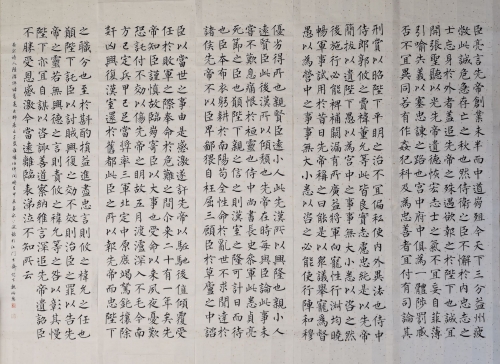 臣亮言先帝創業未半而中道崩殂今天下三分益州疲
敝此誠危急存亡之秋也然侍衛之臣不懈於內忠志之
士忘身於外者蓋追先帝之殊遇欲報之於陛下也誠宜
開張聖聽以光先帝遺德恢宏志士之氣不宜妄自菲薄
引喻失義以塞忠諫之路也宮中府中俱為一體陟罰臧
否不宜異同若有作姦犯科及為忠善者宜付有司論其
刑賞以昭陛下平明之治不宜偏私使內外異法也侍中
侍郎郭攸之費禕董允等此皆良實志慮忠純是以先帝
簡拔以遺陛下愚以為宮中之事事無大小悉以咨之然
後施行必能裨補闕漏有所廣益將軍向寵性行淑均曉
暢軍事試用於昔日先帝稱之曰能是以眾議舉寵為督
愚以為營中之事事無大小悉以咨之必能使行陣和穆
優劣得所也親賢臣遠小人此先漢所以興隆也親小人
遠賢臣此後漢所以傾頹也先帝在時每與臣論此事未
嘗不歎息痛恨於桓靈也侍中尚書長史參軍此悉貞亮
死節之臣也願陛下親之信之則漢室之隆可計日而待
也臣本布衣躬耕於南陽苟全性命於亂世不求聞達於
諸侯先帝不以臣卑鄙猥自枉屈三顧臣於草廬之中諮
臣以當世之事由是感激遂許先帝以驅馳後值傾覆受
任於敗軍之際奉命於危難之間爾來二十有一年矣先
帝知臣謹慎故臨崩寄臣以大事也受命以來夙夜憂歎
恐託付不效以傷先帝之明故五月渡瀘深入不毛今南
方已定兵甲已足當獎率三軍北定中原庶竭駑鈍攘除
奸凶興復漢室還於舊都此臣所以報先帝而忠陛下
之職分也至於斟酌損益進盡忠言則攸之禕允之任也
願陛下託臣以討賊興復之效不效則治臣之罪以告先
帝之靈若無興德之言則責攸之禕允等之咎以彰其慢
陛下亦宜自謀以諮諏善道察納雅言深追先帝遺詔臣
不勝受恩感激今當遠離臨表涕泣不知所云